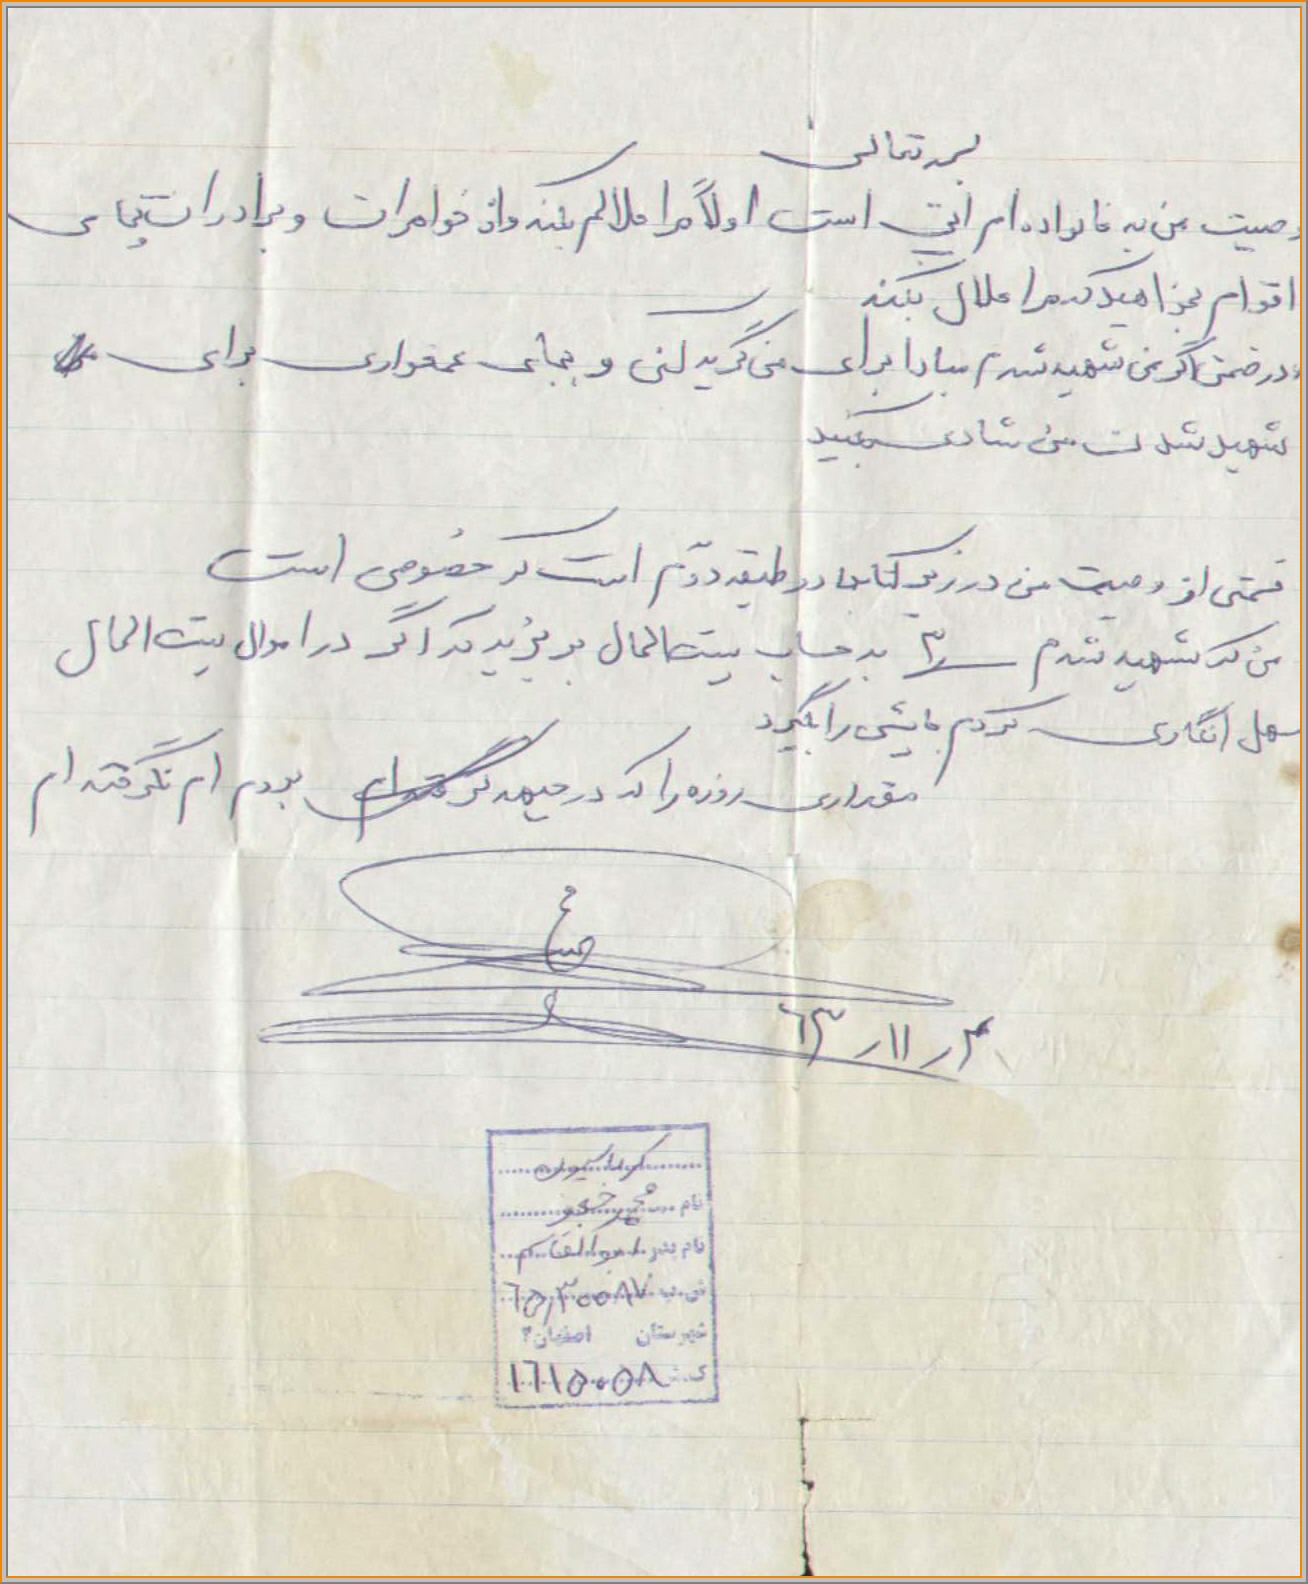 بسمه تعالی
وصیت من به خانواده ام این است اولاً مرا حلالم بکنند و از خواهران و برادران تمامی
اقوام بخواهید که مرا حلال بکنند
و در ضمن اگر من شهید شدم مبادا برای من گریه کنی و بجای غمخواری برای
شهید شدن من شادی بکنید
قسمتی از وصیت من در زیر کتابها در طبقه دوّم است که خصوصی است
من که شهید شدم به حساب بیت المال بریزید که اگر در اموال بیت المال
سهل انگاری کردم جایش را بگیرد
مقداری روزه را که در جبهه بودم ام نگرفته ام
۶۳/۱۱/۴
نام
نام پدر ابوالقاسم
ش.پ ۶۵٫۳۰۰۸۷
شهرستان اصفهان۲
ک. ۱۶۱۵۰۰۵۸